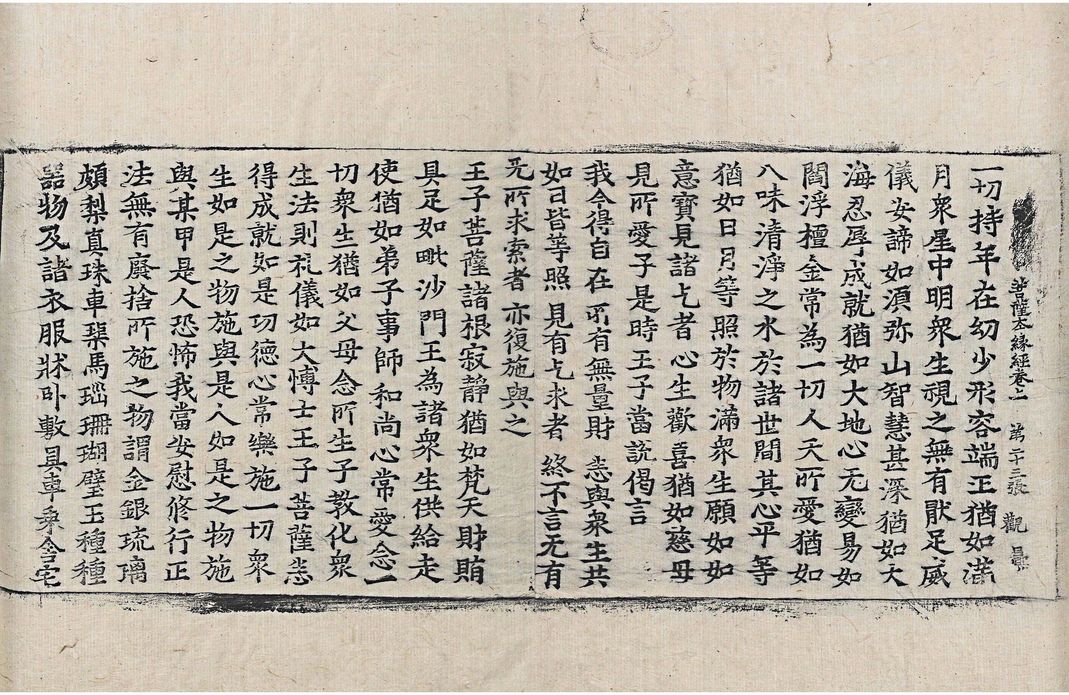 菩薩本緣經卷上 第二十三張 觀
一切持年在幼少形容端正猶如滿
月衆星中明衆生視之無有猒足威
儀安諦如湏弥山智慧甚深猶如大
海忍辱成就猶如大地心无變易如
閻浮檀金常為一切人天所愛猶如
八味清淨之水於諸世間其心平等
猶如日月等照於物滿衆生願如如
意寶見諸乞者心生歡喜猶如慈母
見所愛子是時王子當說偈言
我今得自在 所有無量財 悉與衆生共
如日皆等照 見有乞求者 終不言无有
无所求索者 亦復施與之
王子菩薩諸根寂靜猶如梵天財賄
具足如毗沙門王為諸衆生供給走
使猶如弟子事師和尚心常愛念一
切衆生猶如父母念所生子教化衆
生法則礼儀如大博士王子菩薩悉
得成就如是功德心常樂施一切衆
生如是之物施與是人如是之物施
與某甲是人恐怖我當安慰修行正
法無有廢捨所施之物謂金銀琉璃
頗梨真珠車𤦲馬瑙珊瑚璧玉種種
器物及諸衣服牀卧敷具車乘舍宅